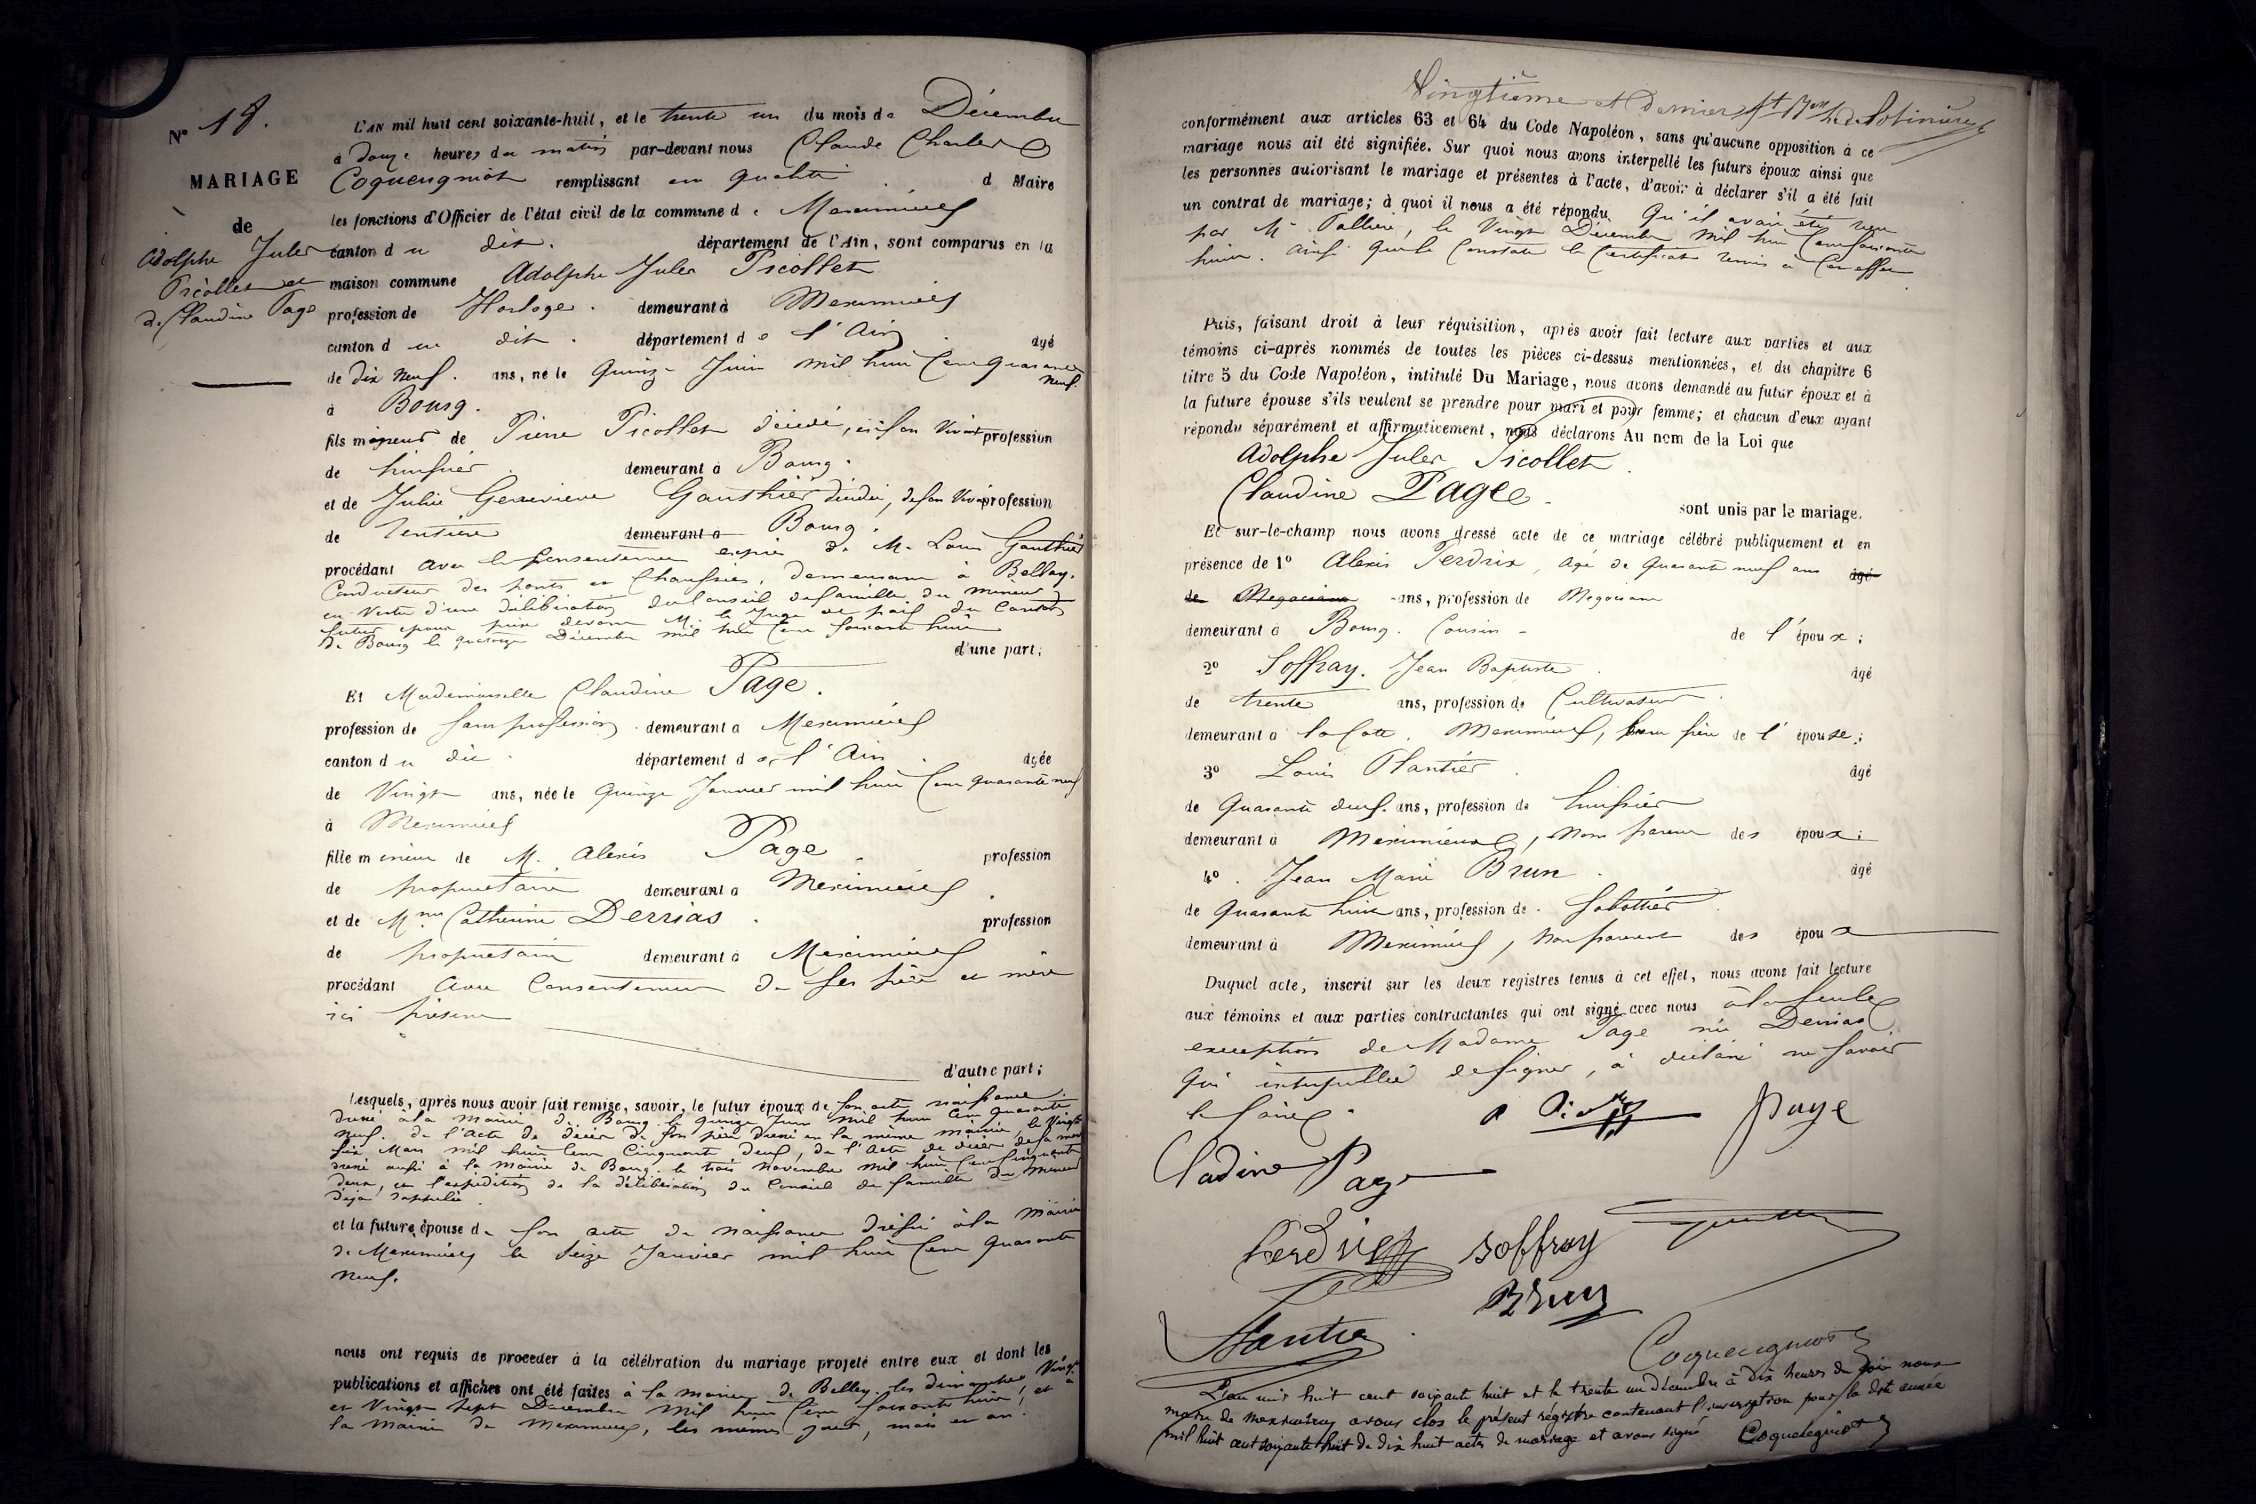 N° 18.
MARIAGE
de
Adolphe Jules
Picollet et
de Claudine Page
L'AN mil huit cent soixante-huit, et le trente un du mois de Décembre
à douze heures du matin par-devant nous Claude Charles
Coquengniot remplissant en qualité d Maire
les fonctions d'Officier de l'état civil de la commune de Meximieux
canton du dit. département de l'Ain, sont comparus en la
maison commune Adolphe Jules Picollet
profession de Horloger. demeurant à Meximieux
canton du dit. département de l'Ain âgé
de dix neuf. ans, né le Quinze Juin mil huit Cent quarante
neuf.
à Bourg.
fils mineur de Pierre Picollet décédé, de son Vivant profession
de huissier demeurant à Bourg.
et de Julie Geneviève Gauthier décédée, de son Vivant profession
de rentière demeurant à Bourg.
procédant avec le Consentement exprès de M. Louis Gauthier
Conducteur des ponts et Chaussées, demeurant à Belley.
en Vertu d'une délibération du Conseil de famille du mineur
futur époux prise devant M. le Juge de paix du Canton
de Bourg le quatorze Décembre mil huit Cent soixante huit
d'une part;
Et Mademoiselle Claudine Page.
profession de sans profession demeurant à Meximieux
canton du dit. département de l'Ain. âgée
de Vingt ans, née le Quinze Janvier mil huit Cent quarante neuf
à Meximieux
fille mineure de M. Alexis Page profession
de propriétaire demeurant à Meximieux
et de Mme Catherine Derrias. profession
de propriétaire demeurant à Meximieux
procédant avec Consentement de ses père et mère
ici présents
d'autre part;
Lesquels, après nous avoir fait remise, savoir, le futur époux de son acte naissance
dressé à la mairie de Bourg le quinze Juin mil huit Cent quarante
neuf. de l'acte de décès de son père dressé en la même mairie, le Vingt
six Mars mil huit Cent Cinquante deux, de l'acte de décès de sa mère
dressé aussi à la Mairie de Bourg. le trois Novembre mil huit Cent Cinquante
deux, et l'expédition de la délibération du Conseil de famille du Mineur
déjà rappelée
et la future épouse de son acte de naissance dressé à la Mairie
de Meximieux le seize Janvier mil huit Cent quarante
neuf.
nous ont requis de procéder à la célébration du mariage projeté entre eux et dont les
publications et affiches ont été faites à la mairie de Belley. les dimanches Vingt
et Vingt sept Décembre mil huit Cent soixante huit, et à
la Mairie de Meximieux, les mêmes jours, mois et an.
Vingtième et dernier
conformément aux articles 63 et 64 du Code Napoléon, sans qu'aucune opposition à ce
mariage nous ait été signifiée. Sur quoi nous avons interpellé les futurs époux ainsi que
les personnes autorisant le mariage et présentes à l'acte, d'avoir à déclarer s'il a été fait
un contrat de mariage; à quoi il nous a été répondu Qu'il avait été reçu
par Me Pallière, le Vingt Décembre mil huit Cent soixante
huit. ainsi que le Constate le Certificat remis à Cet effet
Puis, faisant droit à leur réquisition, après avoir fait lecture aux parties et aux
témoins ci-après nommés de toutes les pièces ci-dessus mentionnées, et du chapitre 6
titre 5 du Code Napoléon, intitulé Du Mariage, nous avons demandé au futur époux et à
la future épouse s'ils veulent se prendre pour mari et pour femme; et chacun d'eux ayant
répondu séparément et affirmativement, nous déclarons Au nom de la Loi que
Adolphe Jules Picollet
Claudine Page
sont unis par le mariage.
Et sur-le-champ nous avons dressé acte de ce mariage célébré publiquement et en
présence de 1° Alexis Perdrix, âgé de Quarante neuf ans âgé
de Négociant ans, profession de Négociant
demeurant à Bourg. Cousin de l'époux;
2° Soffray. Jean Baptiste âgé
de trente ans, profession de Cultivateur
demeurant à la Côte. Meximieux, beau frère de l'épouse;
3° Louis Plantier âgé
de Quarante deux. ans, profession de huissier
demeurant à Meximieux, Non parent des époux;
4°. Jean Marie Brun. âgé
de Quarante huit ans, profession de Sabottier
demeurant à Meximieux, Non parent des époux
Duquel acte, inscrit sur les deux registres tenus à cet effet, nous avons fait lecture
aux témoins et aux parties contractantes qui ont signé avec nous à la seule
exception de Madame Page née Derrias
Qui interpellée de signer, a déclaré ne savoir
le faire.
Page
Cladine Page
Perdrix Soffray
Brun
Plantier
Coquengniot
L'an mil huit cent soixante huit et le trente un décembre à dix heures du soir nous
maire de Meximieux avons clos le présent régistre contenant l'inscription pour la dite année
mil huit cent soixante huit de dix huit actes de mariage et avons signé Coquengniot